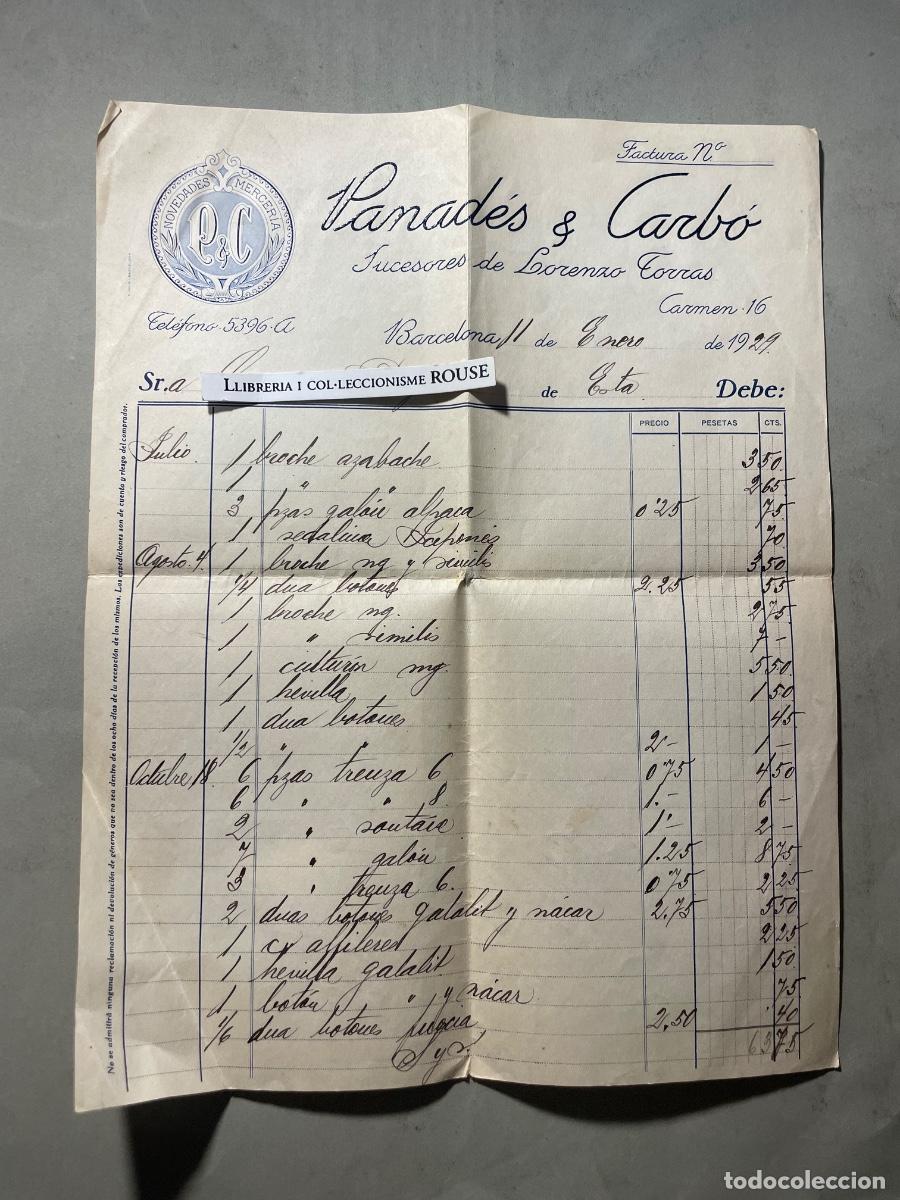 Factura Nº
NOVEDADES MERCERÍA
P&C
Panadés & Carbó
Sucesores de Lorenzo Torras
Carmen-16
Teléfono-5396-A
Barcelona 11 de Enero de 1929.
Sr.a
LLIBRERIA I COL·LECCIONISME ROUSE
de Esta Debe:
PRECIO PESETAS CTS.
Julio. 1 broche azabache 3 50.
1 " " 2 65
3 pzas galón alpaca 0'25 75
1 sedalina Japonés 70
Agosto 4. 1 broche ng y similis 3 50
1/4 dna botones 2.25 55
1 broche ng. 2 75
1 " similis 7 -
1 ng. 5 50
1 hevilla 1 50
1 dna botones 45
1/2 " " 2- 1 -
Octubre 18. 6 pzas trenza 6 0'75 4 50
6 " " 8 1.- 6 -
2 " soutaie 1'- 2 -
7 " galón 1.25 8 75
3 " trenza 6. 0'75 2 25
2 dnas botones galalit y nácar 2.75 5 50
1 cx alfileres 2 25
1 hevilla galalit 1 50
1 botón " y nácar 75
1/6 dna botones 2,50 40
63 75
No se admitirá ninguna reclamación ni devolución de géneros que no sea dentro de los ocho días de la recepción de los mismos. Los expediciones son de cuenta y riesgo del comprador.
todocoleccion